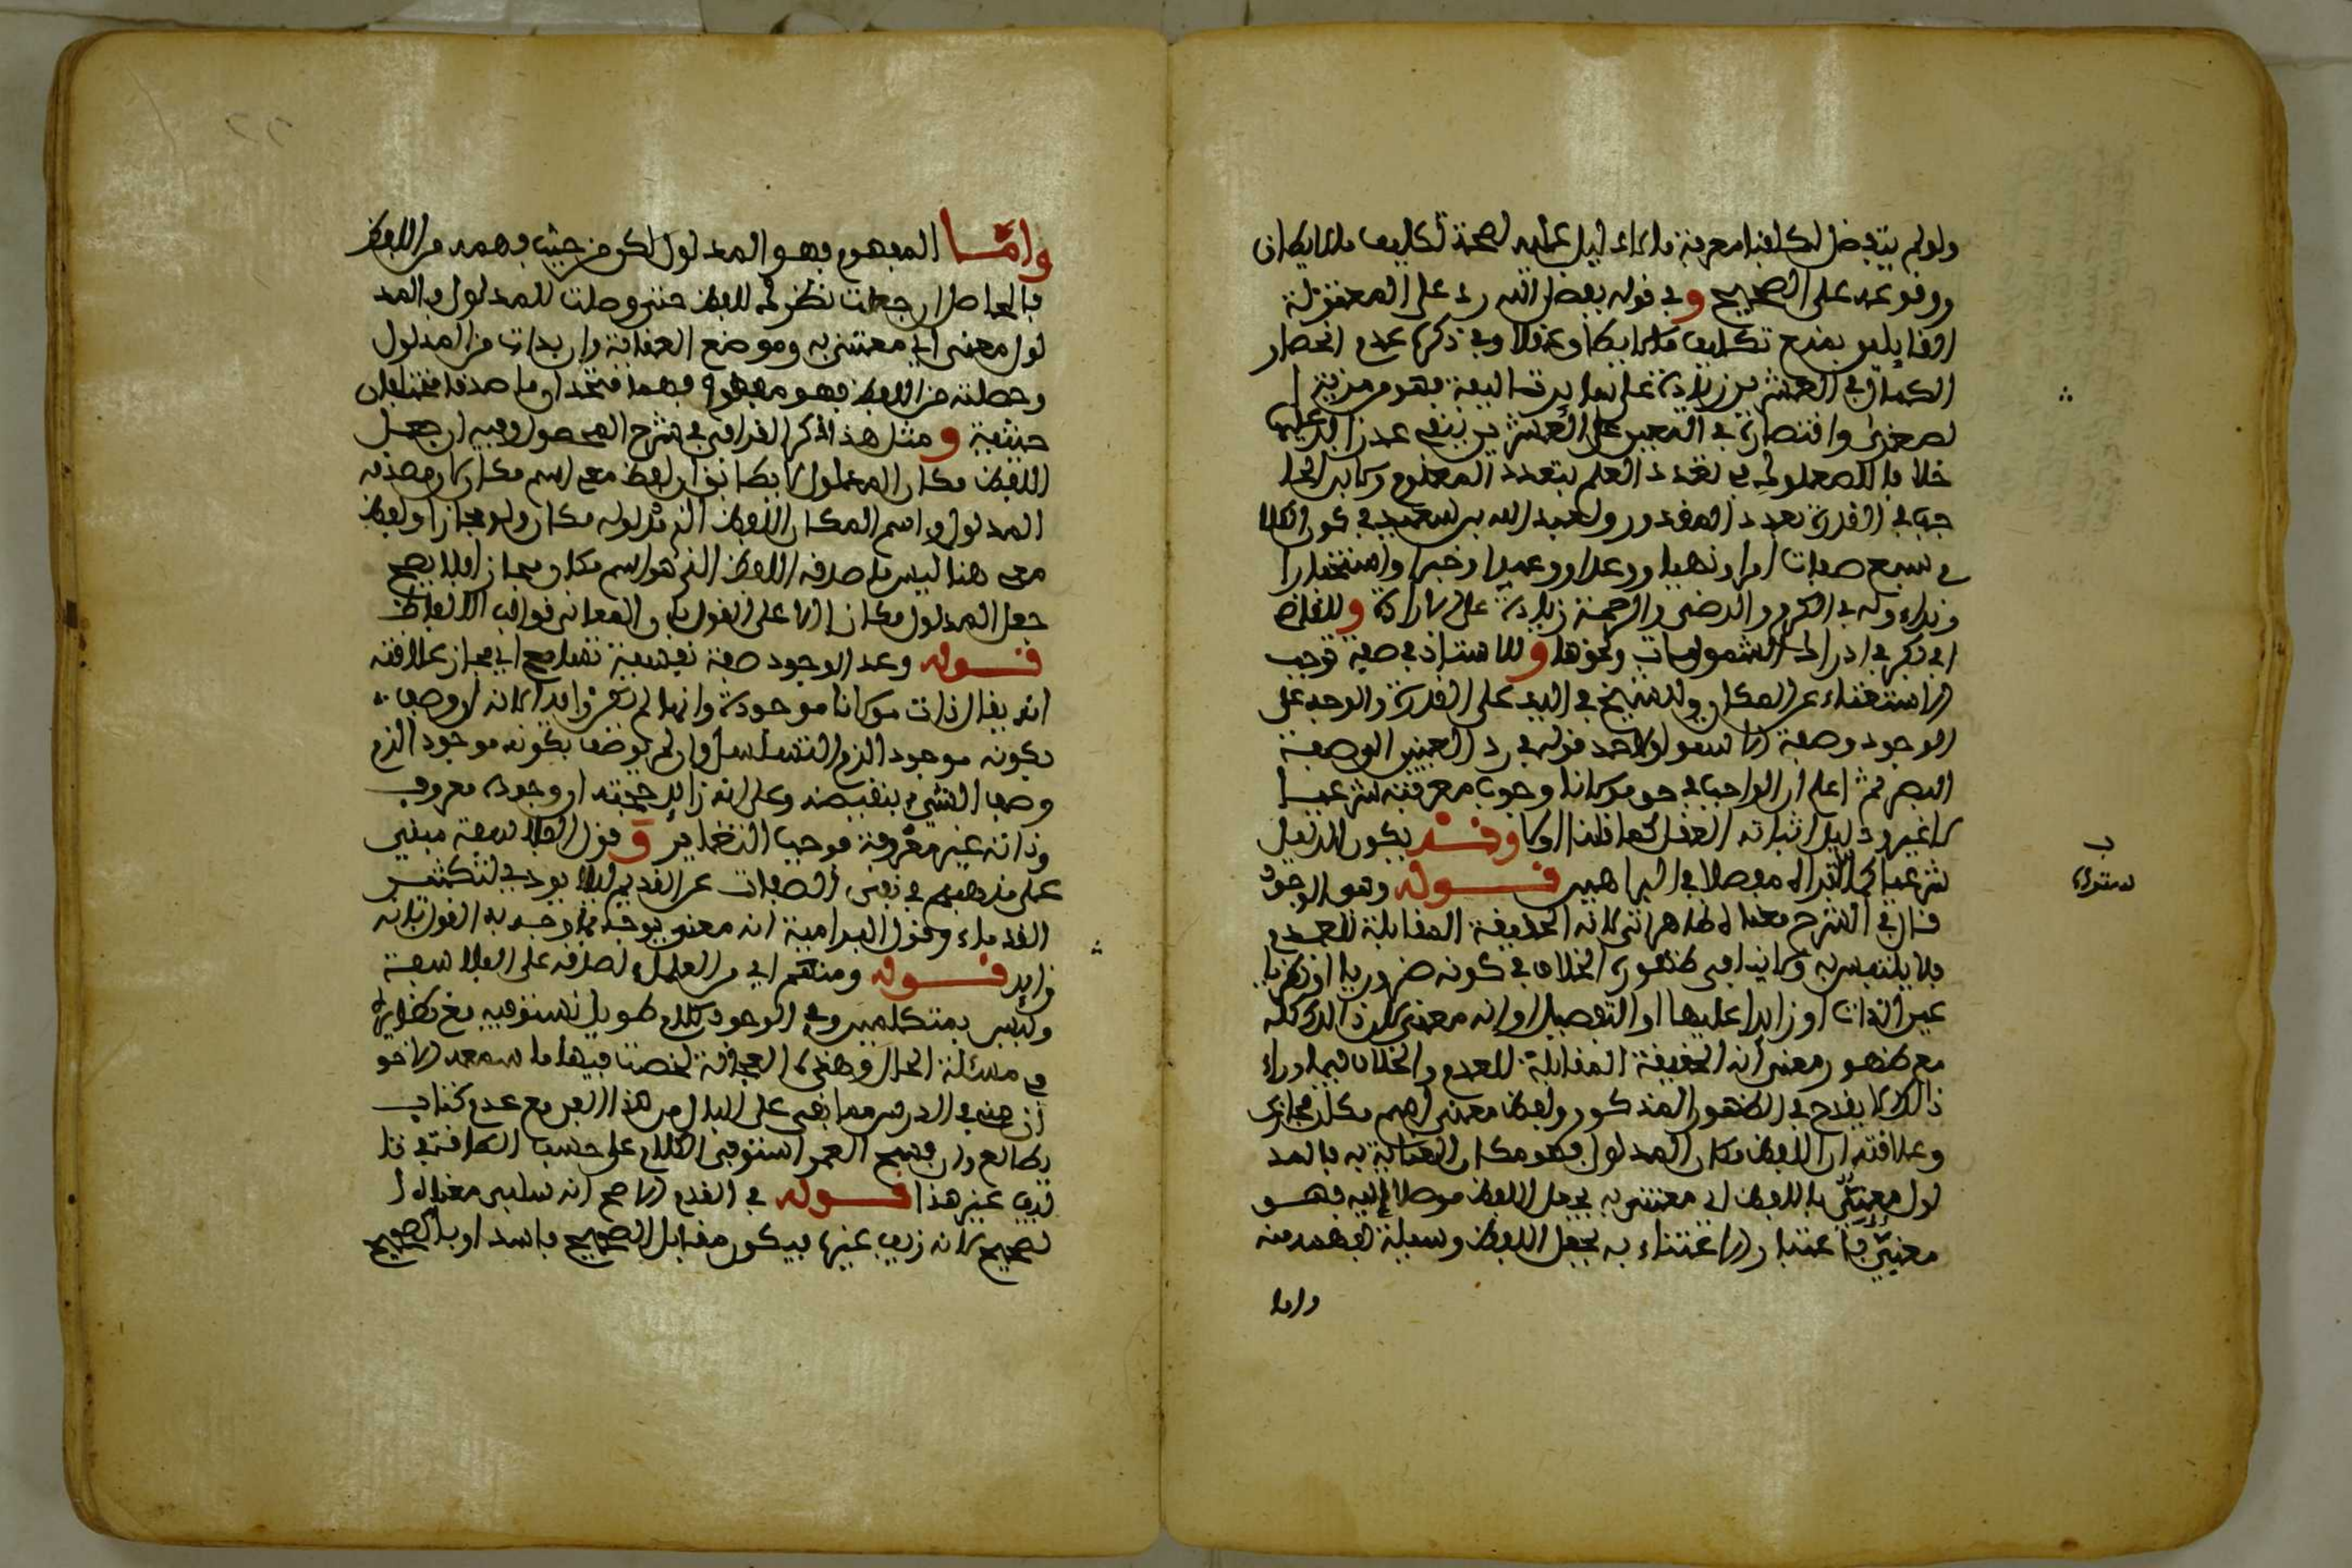 ولو لم يتفضل لكلفنا معرفة ما لا دليل عليه لصحة تكليف ما لا يطاق
ووقوعه على الصحيح وفي قوله بفضل الله رد على المعتزلة
القايلين بمنع تكليف ما لا يطاق عقلا وفي ذكره عدم انحصار
الكمال في العشرين زيادة على تاليفه فهو من مزية
لصغرى واقتصاره في التعبير على العشرين ينفي عد زايد عليها
خلافا للصعلوكي في تعدد العلم بتعدد المعلوم
في القدرة تعدد المقدور ولعبد الله بن سعيد في كون الكلام
في سبع صفات امرا ونهيا ووعدا ووعيدا وخبرا واستخبارا
ونداء وله في الكرم والرضى والرحمة زيادة على الارادة وللقاضي
ابي بكر في ادراك المشمومات ونحوها وللاستاذ في صفة توجب
الاستغناء عن المكان وللشيخ في اليد على القدرة والوجه على
الوجود وصفة الاستواء ولاحد قوليه في رد العينين الى صفة
البصر ثم اعلم ان الواجب في حق مولانا وجوب معرفته شرعيا
لا غير ودليل اثباته العقل كما قلنا اولا وقد يكون الدليل
شرعيا كما تراه مفصلا في البراهين قوله وهو الوجود
قال في الشرح معناه ظاهر اي لانه الحقيقة المقابلة للعدم
فلا يلتبس به ولا ينافي ظهوره الخلاف في كونه ضروريا او نظريا
عين الذات او زايدا عليها او التفصيل او انه معنى لان ذالك كله
مع ظهور معنى انه الحقيقة المقابلة للعدم والخلاف فيما وراء
ذالك لا يقدح في الظهور المذكور ولفظ معنى اسم مكان مجازى
وعلاقته ان اللفظ مكان المدلول فهو مكان العناية به فالمد
لول معنى باللفظ اي معتنى به بجعل اللفظ موصلا اليه فهو
معنى باعتبار الاعتناء به بجعل اللفظ وسيلة لفهمه منه
واما
ب
ستواء
وامـا المفهوم فهو المدلول لكن من حيث فهمه من اللفظ
فالحاصل ان جعلت نظرك للفظ حتى وصلت للمدلول فالمد
لول معنى اي معتنى به وموضع العناية وان بدات من المدلول
وحصلته من اللفظ فهو مفهوم فهما متحدان ما صدقا مختلفان
حيثية ومثل هذا ذكر القرافي في شرح المحصول وفيه ان جعل
اللفظ مكان المدلول لا يطابق ان لفظ معنى اسم مكان لان مصدقه
المدلول واسم المكان اللفظ الذي مدلوله مكان ولو مجازا ولفظ
معنى هنا ليس ما صدقه اللفظ الذي هو اسم مكان مجازا فلا يصح
جعل المدلول مكانا الا على القول بان المعاني قوالب الالفاظ
قوله وعد الوجود صفة نفسية تسامح اي مجاز علاقته
انه يقال ذات مولانا موجودة وانما لم يكن زايدا لانه ان وصف
بكونه موجودا لزم التسلسل وان لم يوصف بكونه موجودا لزم
وصف الشيء بنقيضه وعلى انه زايد حجته ان وجوده معروف
وذاته غير معروفة فوجب التغاير وقول الفلاسفة مبني
على مذهبهم في نفي الصفات عن القديم ليلا يودي لتكثير
القدماء وقول الكرامية انه معنى يوجه بما وجه به القول بانه
زايد قوله ومنهم اي من العلماء لصدقه على الفلاسفة
وليس بمتكلمين وفي الوجود كلام طويل نستوفيه مع نظايره
في مسئلة الحال وهذه العجالة لخصت فيها ما سمعه الاخو
ان منى في الدرس مما بقي على البال من هذا الفن مع عدم كتاب
يطالع وان فسح العمر استوفى الكلام على حسب الطاقة في تا
ليف غير هذا قوله في القدم الاصح انه سلبي مقابل ا
لصحيح لانه زيف غيره فيكون مقابل الصحيح فاسد او بالصحيح